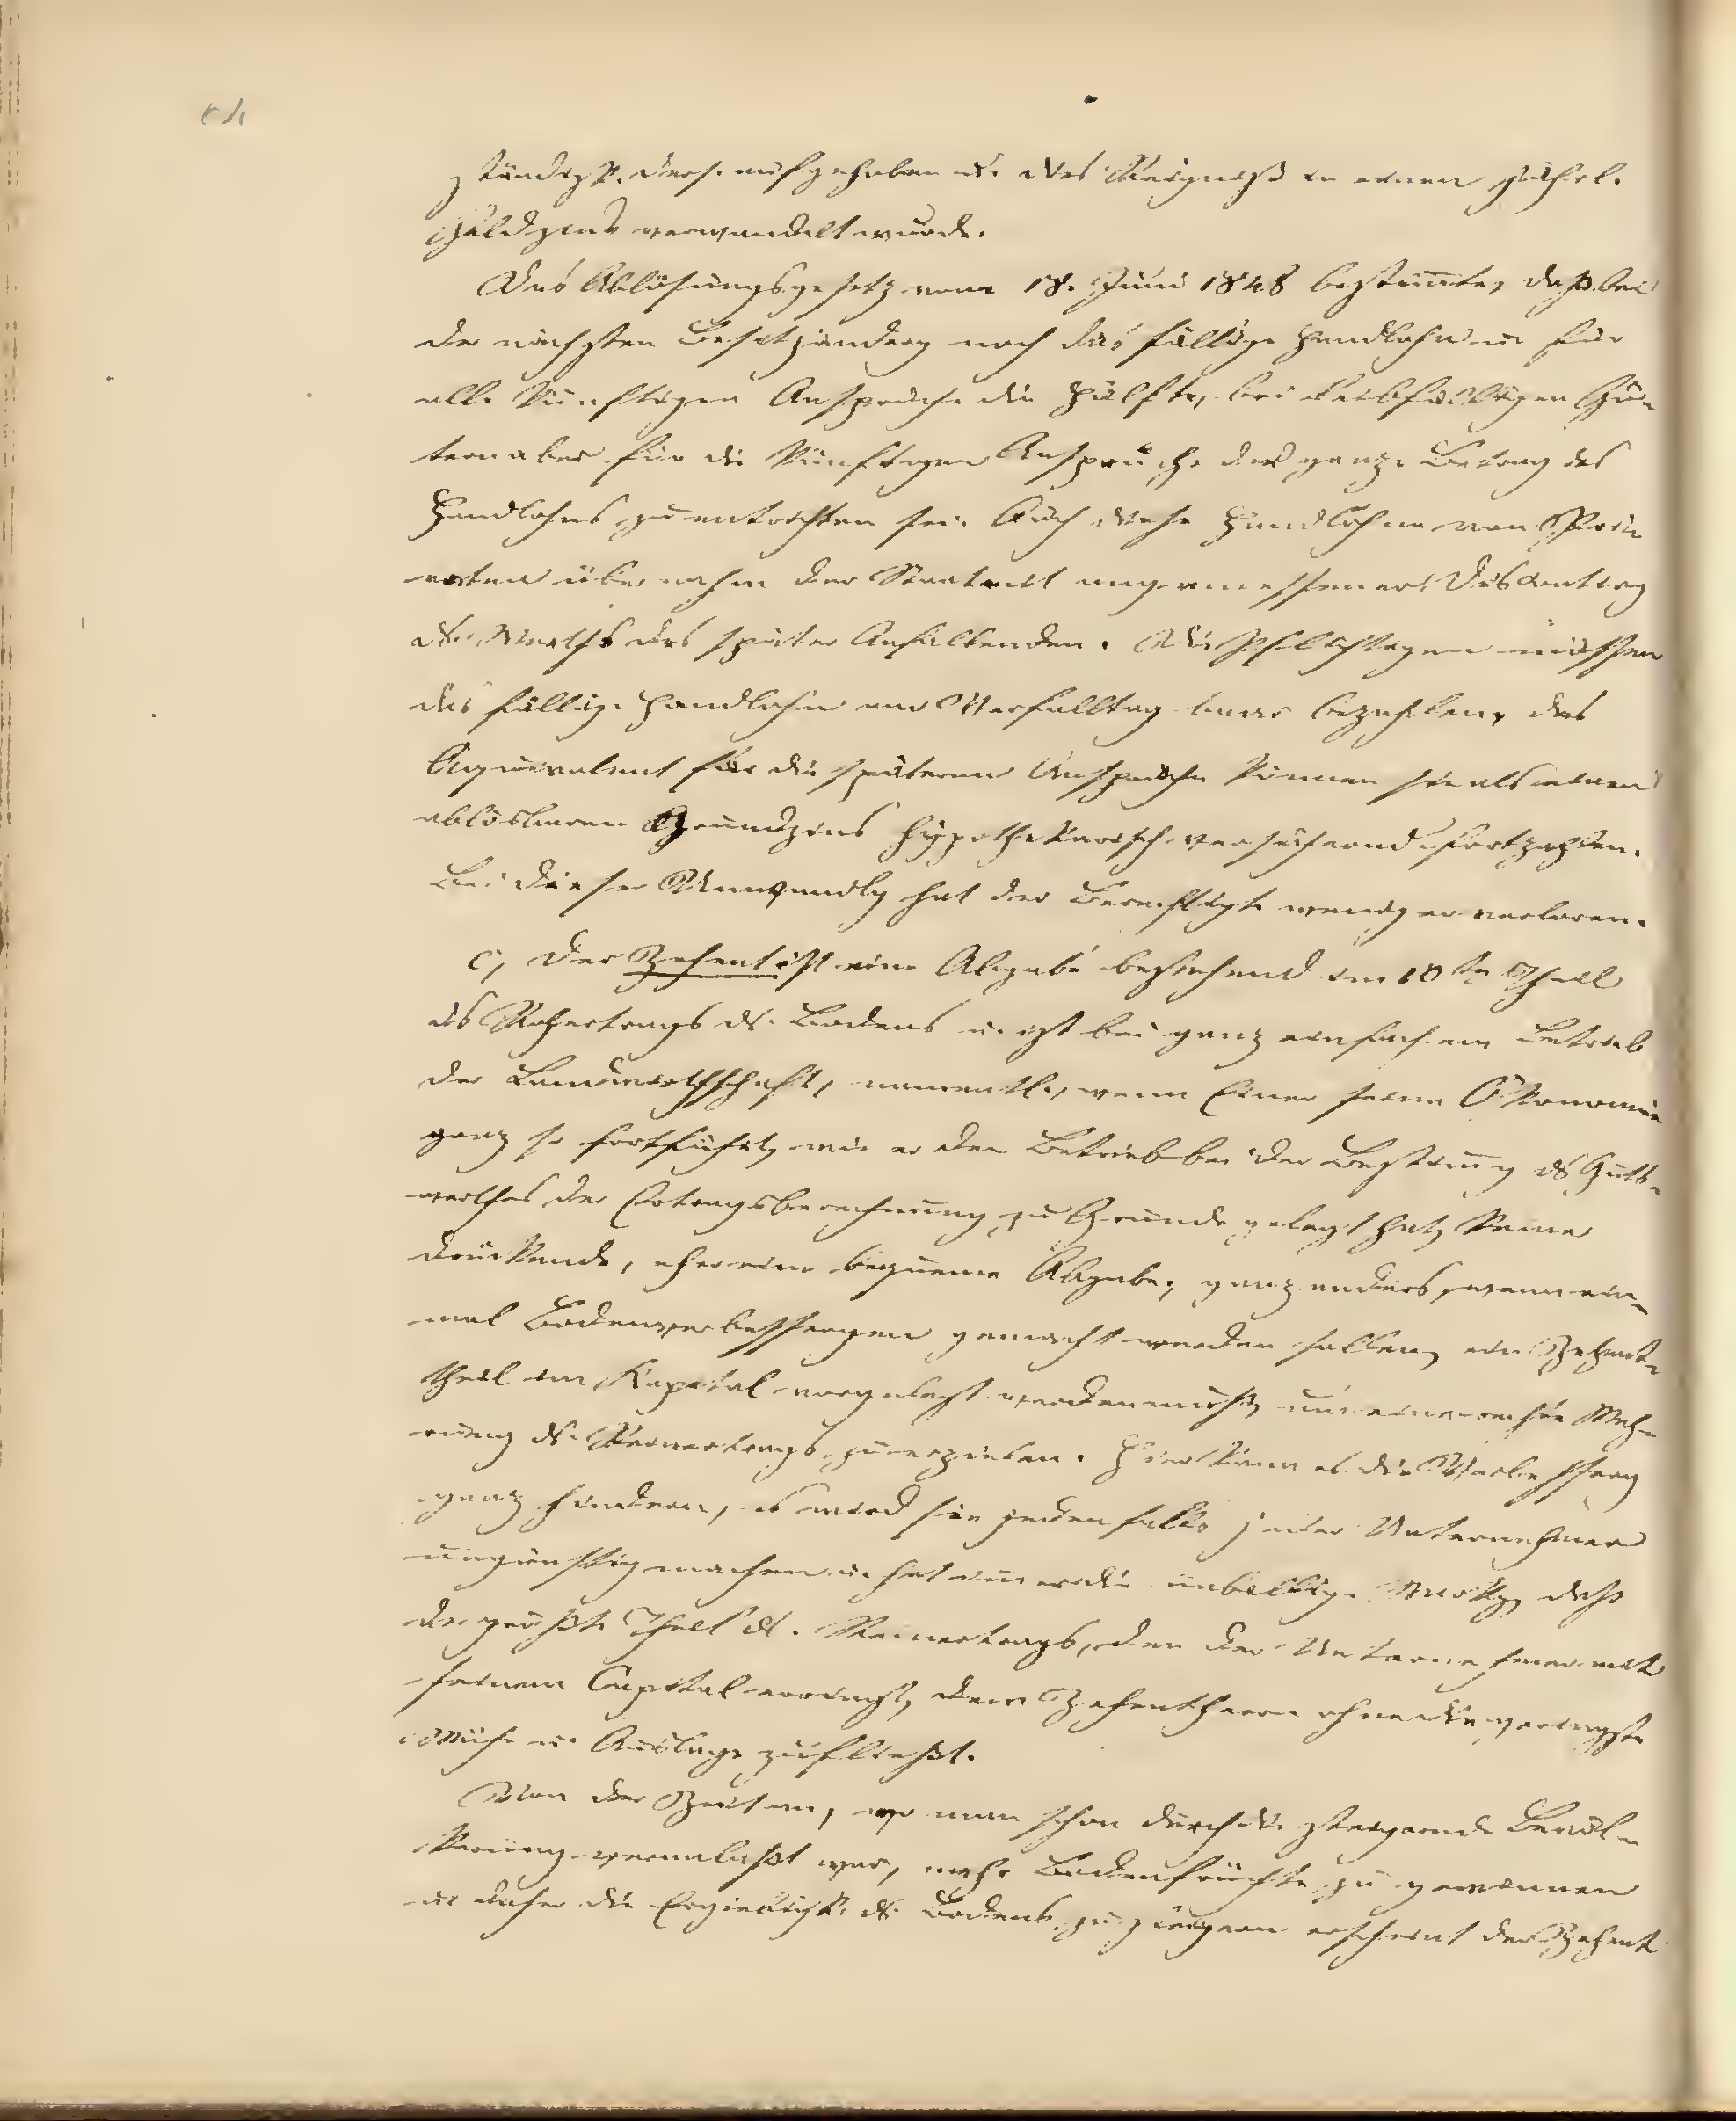 ständigk. ders. aufgehoben u. das Reichniß in einen jährl.
Geldzins verwandelt wurde.
Das Ablösungsgesetz vom 18. Juni 1848 bestimmte, daß bei
der nächsten Besitzänderg noch das fällige Handlohn u. für
alle künftigen Ansprüche die Hälfte, bei leibfälligen Gü-
tern aber für die künftigen Ansprüche der ganze Betrag des
Handlohns zu entrichten sei. Auch diese Handlohne von Priv
aten übernahm der Staat mit angemessener
ds. Werths des später Anfallenden. Die Pflichtigen müssen
das fällige Handlohn am Verfalltag baar bezahlen, das
Äquivalent für die späteren Ansprüche können sie als einen
ablösbaren Grundzins hypothekarisch versichernd fortzahlen.
Bei dieser Umwandlg hat der Berechtigte weniger verloren.
c, Der Zehent ist eine Abgabe bestehend im 10ten Theil
ds Rohertrags ds. Bodens u. ist bei ganz einfachem Betrieb
der Landwirthschaft, namentl., wenn Einer seine Ökonomie
ganz so fortführt, wie er den Betrieb bei der Bestimg ds Guts-
werthes der Ertragsberechnung zu Grunde gelegt hat, keine
drückende, eher eine bequeme Abgabe; ganz anders, wenn ein-
mal Bodenverbessergen gemacht werden sollen, ein Zehent-
theil im Kapital vorgelegt werden muß, um eine Meh-
rung ds. Reinertrags zu erzielen. Hier kann es die Verbesserg
ganz hindern, es wird sie jedenfalls jeder Unternehmer
ungünstig machen u. hat immer die unbillige Wirkg, daß
der größte Theil ds. Reinertrags, den der Unternehmer mit
seinem Capital erringt, dem Zehentherrn ohne die geringste
Mühe u. Auslage zufließt.
Von der Zeit an, wo man schon durch die steigende Bevöl-
kerung veranlaßt war, mehr Bodenfrüchte zu gewinnen
u. daher die Ergiebigk. ds. Bodens zu steigern erscheint der Zehent